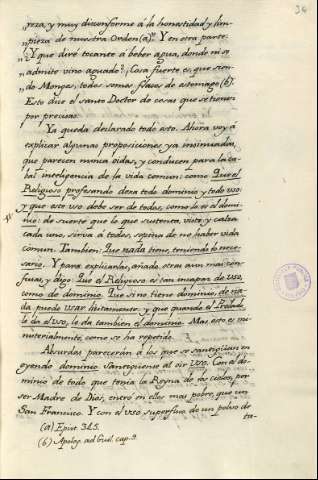 34
„reza, y muy disconforme á la honestidad y lim-
„pieza de nuestra Orden (a)." Y en otra parte:
„Y que diré tocante á beber agua, donde ni se
„admite vino aguado? ¡Cosa fuerte es que sien-
„do Monges, todos somos flacos de estomago (b).
Esto dice el santo Doctor de cosas que se tienen
por precisas.
Ya queda declarado todo esto. Ahora voy á
explicar algunas proposiciones ya insinuadas,
que parecen nunca oidas, y conducen para la ca-
bal inteligencia de la vida comun: como Que el
Religioso profesando dexa todo dominio y todo uso:
y que este uso debe ser de todos, como lo es el domi-
nio: de suerte que lo que sustenta, viste, y calza
cada uno, sirva á todos, sopena de no haber vida
comun. Tambien: Que nada tiene, teniendo lo nece-
sario. Y para explicarlas, añado otras aun mas con-
fusas, y digo: Que el Religioso es tan incapaz de uso,
como de dominio. Que si no tiene dominio, de na-
da puede usar licitamente: y que quando el Prelado
le da el uso, le da tambien el dominio. Mas esto es mi-
nisterialmente, como se ha repetido.
Absurdas pareceràn à los que se santigüan en
oyendo dominio santiguense al oir uso. Con el do-
minio de todo que tenia la Reyna de los cielos, por
ser Madre de Dios, enerò en ellas mas pobre, que un
San Francisco. Y con el uso superfluo de un polvo de
ta-
(a) Epist. 345.
(b) Apolog. ad Guil. cap. 9.